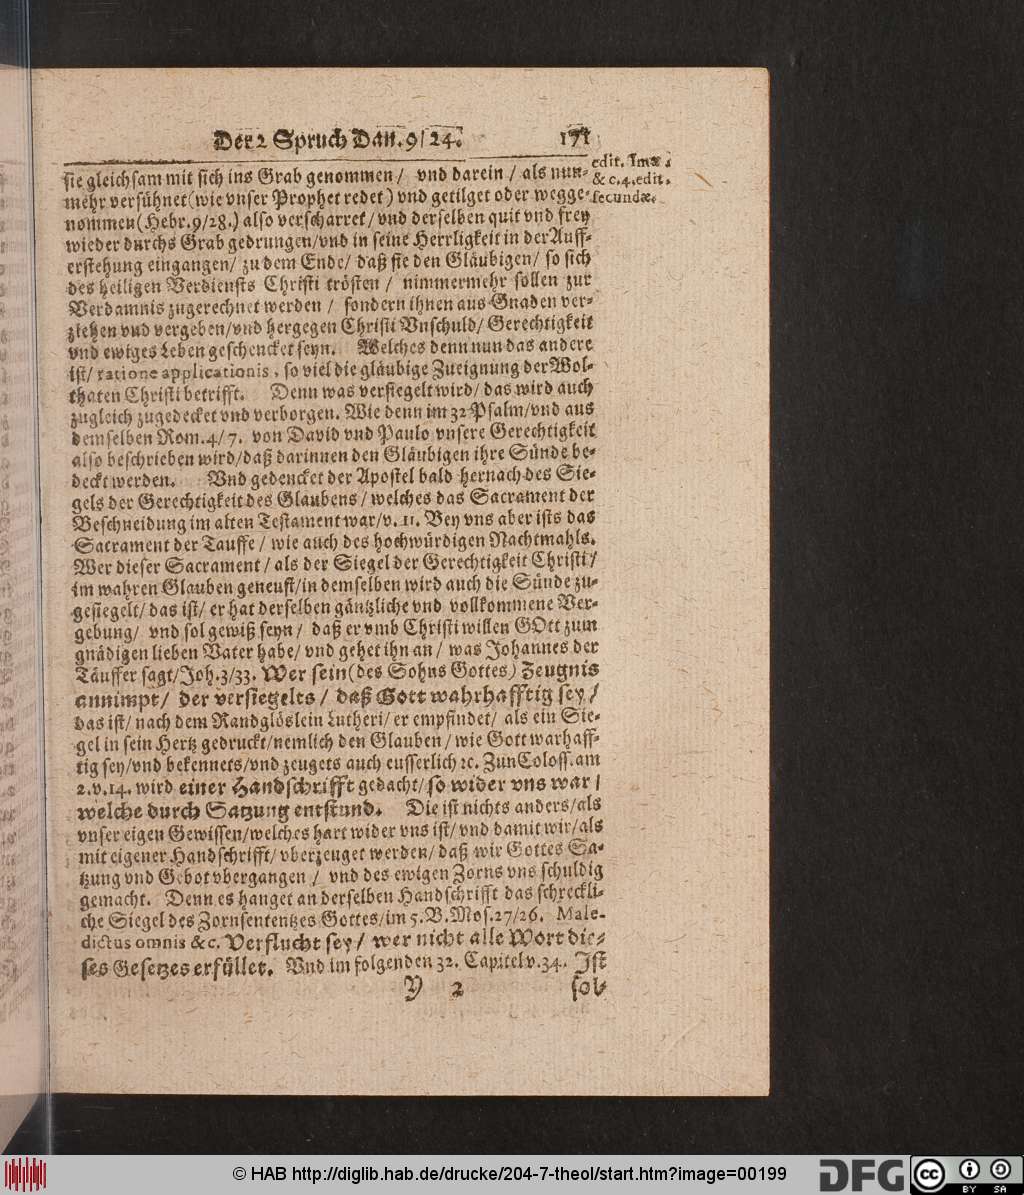 Der 2 Spruch Dan. 9/ 24. 171
edit. 1mæ.
& c. 4. edit.
secundæ.
sie gleichsam mit sich ins Grab genommen / vnd darein / als nun-
mehr versühnet (wie vnser Prophet redet) vnd getilget oder wegge-
nommen (Hebr. 9/28.) also verscharret / vnd derselben quit vnd frey
wieder durchs Grab gedrungen/vnd in seine Herrligkeit in der Auff-
erstehung eingangen/ zu dem Ende/ daß sie den Gläubigen/ so sich
des heiligen Verdiensts Christi trösten / nimmermehr sollen zur
Verdamnis zugerechnet werden / sondern ihnen aus Gnaden ver-
ziehen vnd vergeben/vnd hergegen Christi Vnschuld/ Gerechtigkeit
vnd ewiges Leben geschencket seyn. Welches denn nun das andere
ist/ ratione applicationis, so viel die gläubige Zueignung der Wol-
thaten Christi betrifft. Denn was versiegelt wird/ das wird auch
zugleich zugedecket vnd verborgen. Wie denn im 32 Psalm/vnd aus
demselben Rom. 4/ 7. von David vnd Paulo vnsere Gerechtigkeit
also beschrieben wird/daß darinnen den Gläubigen ihre Sünde be-
deckt werden. Vnd gedencket der Apostel bald hernach des Sie-
gels der Gerechtigkeit des Glaubens / welches das Sacrament der
Beschneidung im alten Testament war/v. 11. Bey vns aber ists das
Sacrament der Tauffe / wie auch des hochwürdigen Nachtmahls.
Wer dieser Sacrament / als der Siegel der Gerechtigkeit Christi /
im wahren Glauben geneust/in demselben wird auch die Sünde zu-
gesiegelt/ das ist/ er hat derselben gäntzliche vnd vollkommene Ver-
gebung/ vnd sol gewiß seyn / daß er vmb Christi willen GOtt zum
gnädigen lieben Vater habe/ vnd gehet ihn an / was Johannes der
Täuffer sagt/Joh. 3/33. Wer sein (des Sohns Gottes) Zeugnis
annimpt/ der versiegelts / daß Gott wahrhafftig sey /
das ist/ nach dem Randglöslein Lutheri/ er empfindet/ als ein Sie-
gel in sein Hertz gedruckt/nemlich den Glauben / wie Gott warhaff-
tig sey/vnd bekennets/vnd zeugets auch eusserlich ꝛc. Zun Coloss. am
2. v. 14. wird einer Handschrifft gedacht/ so wider vns war /
welche durch Satzung entstund. Die ist nichts anders/als
vnser eigen Gewissen/welches hart wider vns ist/ vnd damit wir/als
mit eigener Handschrifft/ vberzeuget werden/ daß wir Gottes Sa-
tzung vnd Gebot vbergangen / vnd des ewigen Zorns vns schuldig
gemacht. Denn es hanget an derselben Handschrifft das schreckli-
che Siegel des Zornsententzes Gottes/im 5. B. Mos. 27/26. Male-
dictus omnis & c. Verflucht sey / wer nicht alle Wort die-
ses Gesetzes erfüllet. Vnd im folgenden 32. Capitel v. 34. Ist
Y 2 sol-
© HAB http://diglib.hab.de/drucke/204-7-theol/start.htm?image=00199
DFG
cc
BY SA